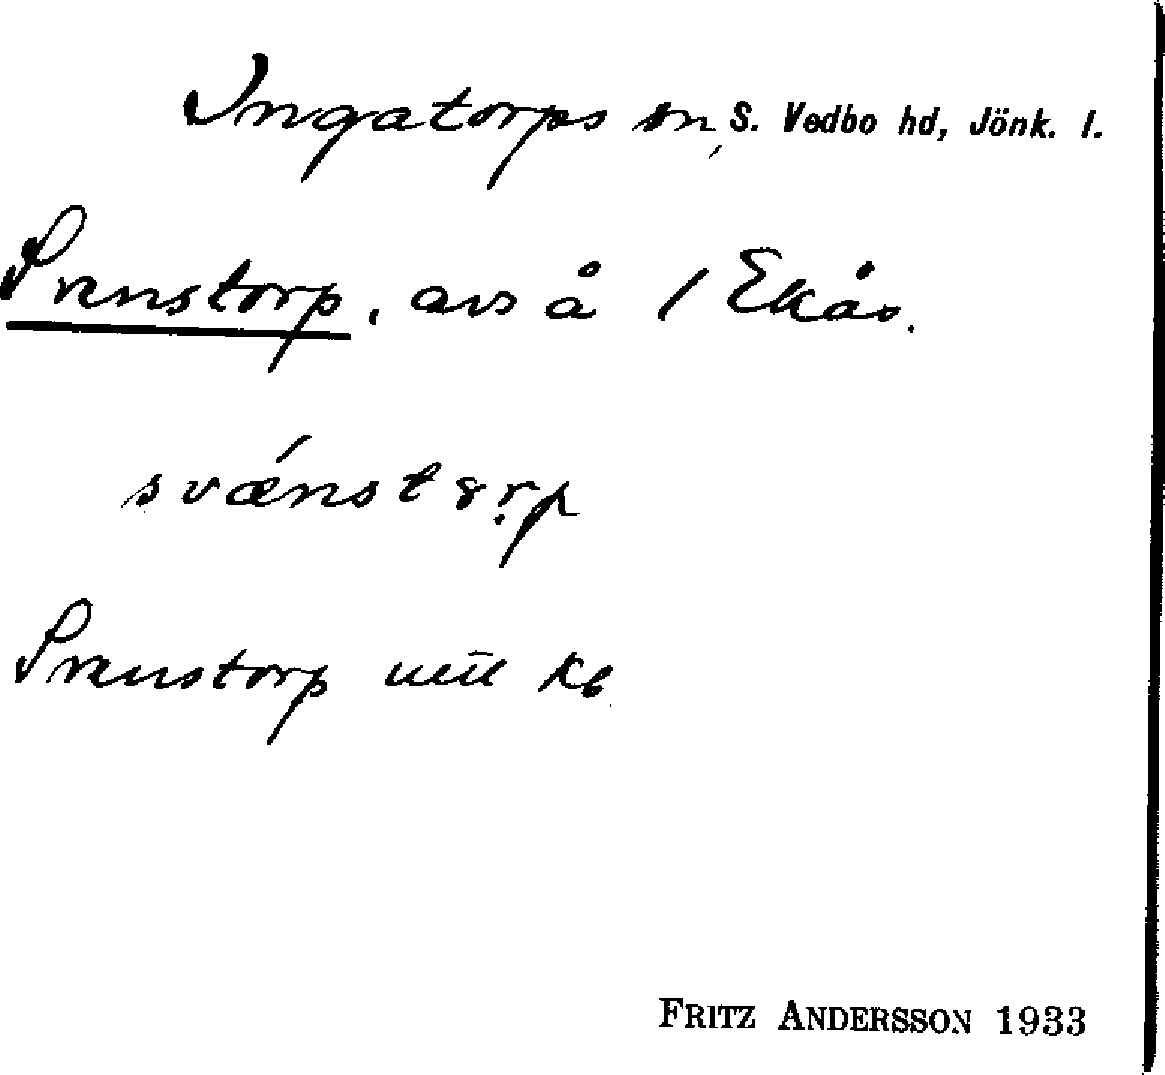 Ingatorps sn, S. Vedbo hd, Jönk. l.
Svenstorp, avs å 1 Ekås.
svǽnstȣrp
Svenstorp utt kb
FRITZ ANDERSSON 1933